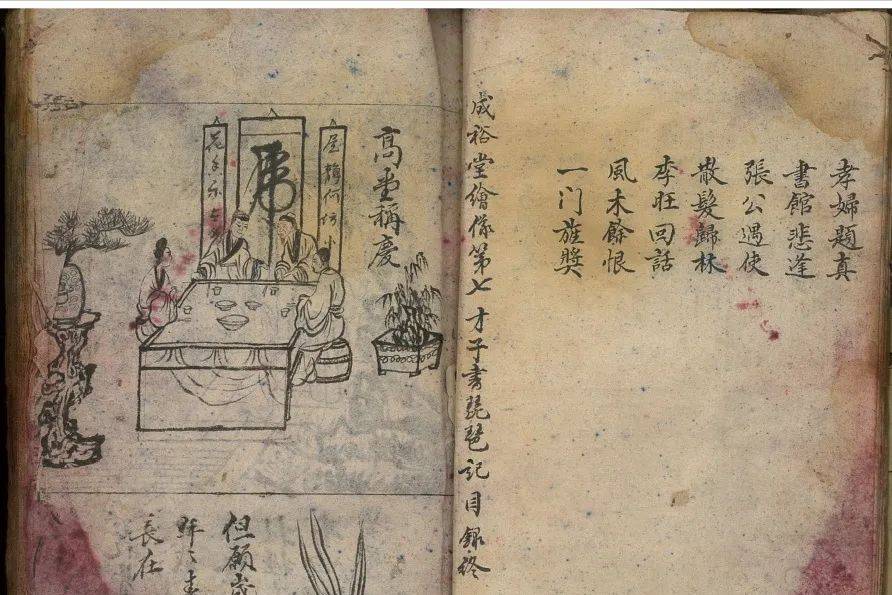 孝婦題真
書館悲逢
張公遇使
散髮歸林
李旺回話
風木餘恨
一门旌獎
成裕堂繪像第七才子書琵琶記目錄終
高堂稱慶
屋何小
花不
但願歲
年〻
長在